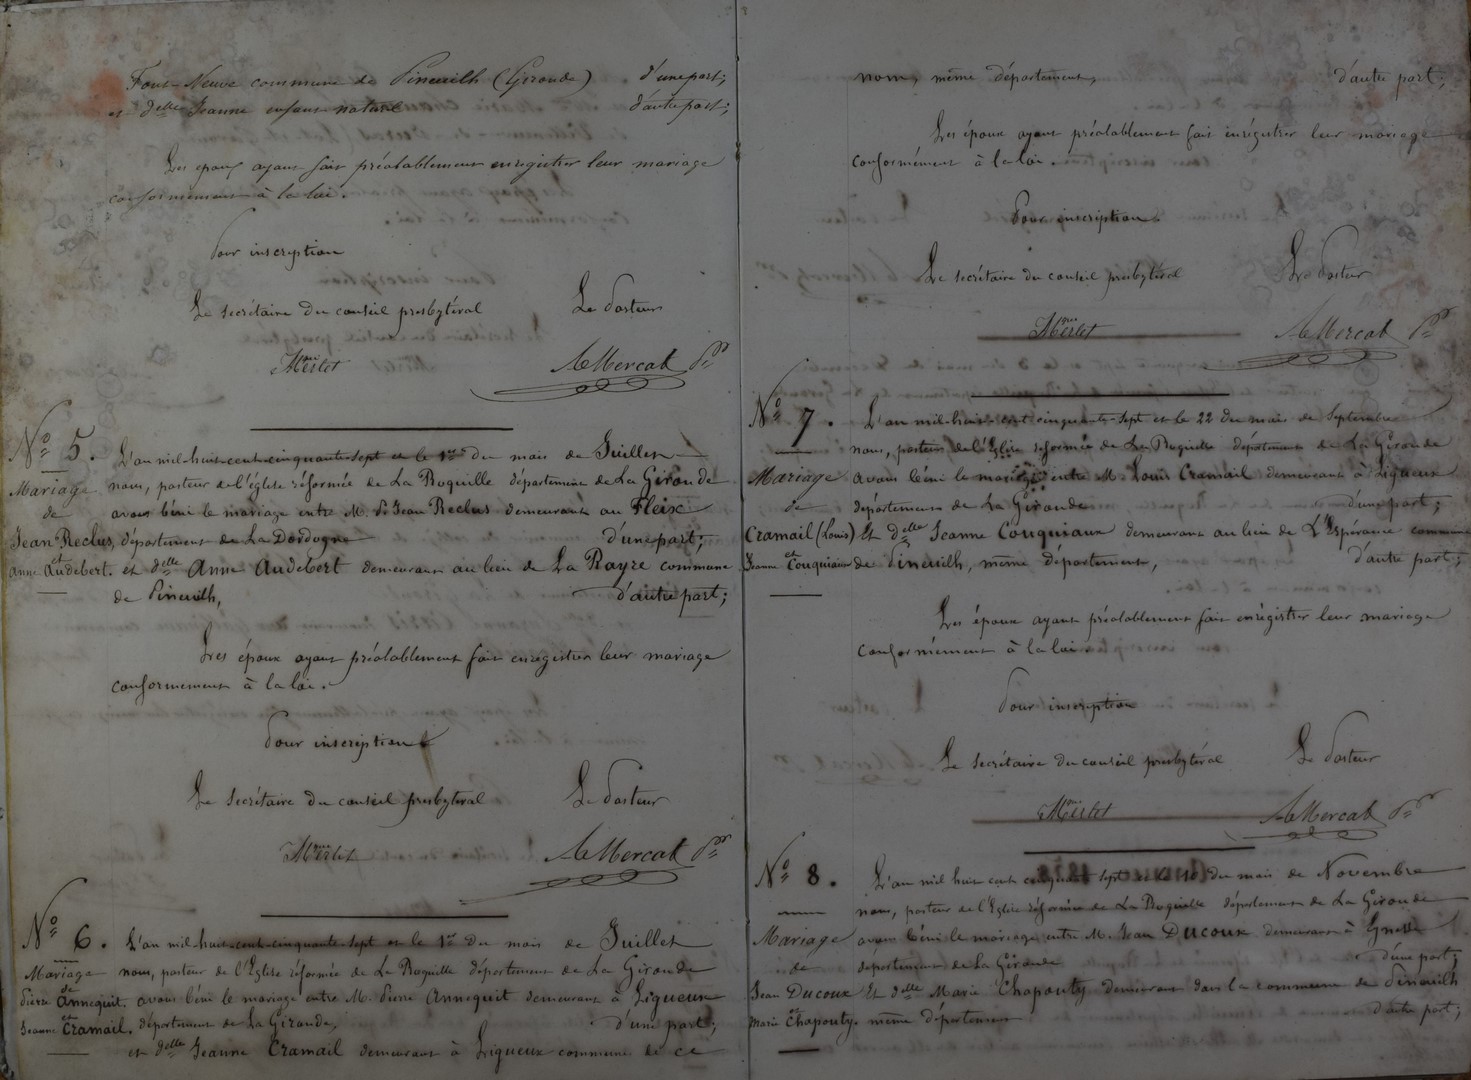 Font-Neuve commune de Pineuilh (Gironde) d'une part;
et delle Jeanne enfant naturel d'autre part;
Les époux ayant fait préalablement enregistrer leur mariage
conformément à la loi.
Pour inscription
Le secrétaire du conseil presbytéral Le Pasteur
Merlet AeMercat Pr
No 5. L'an mil-huit-cent-cinquante-sept et le 1er du mois de Juillet
Mariage nous, pasteur de l'église réformée de La Roquille département de La Gironde
de avons béni le mariage entre M. Jean Reclus demeurant au Fleix
Jean Reclus, département de La Dordogne d'une part;
et
Anne Audebert. et delle Anne Audebert demeurant au lieu de La Rayre commune
de Pineuilh, d'autre part;
Les époux ayant préalablement fait enregistrer leur mariage
conformement à la loi.
Pour inscription
Le secrétaire du conseil presbytéral Le Pasteur
Merlet AeMercat Pr
No 6. L'an mil-huit-cent-cinquante-sept et le 1er du mois de Juillet
Mariage nous, pasteur de l'Eglise réformée de La Roquille département de La Gironde
de
Pierre Annequit. avons béni le mariage entre M. Pierre Annequit demeurant à Ligueux
et
Jeanne Cramail. département de La Gironde, d'une part;
et delle Jeanne Cramail demeurant à Ligueux commune de ce
nom, même département, d'autre part;
Les époux ayant préalablement fait enrégistrer leur mariage
conformément à la loi.
Pour inscription
Le secrétaire du conseil presbytéral Le Pasteur
Merlet AeMercat Pr
No 7. L'an mil-huit-cent-cinquante-sept et le 22 du mois de Septembre
nous, pasteur de l'Eglise réformée de La Roquille département de La Gironde
Mariage avons béni le mariage entre M. Louis Cramail demeurant à Ligueux
de département de La Gironde d'une part;
Cramail (Louis) Et delle Jeanne Couquiaux demeurant au lieu de L'Espérance commune
et
Jeanne Couquiaux de Pineuilh, même département, d'autre part;
Les époux ayant préalablement fait enrégistrer leur mariage
conformément à la loi.
Pour inscription
Le secrétaire du conseil presbytéral Le Pasteur
Merlet AeMercat Pr
No 8. L'an mil huit cent cinquante sept du mois de Novembre
nous, pasteur de l'Eglise réformée de La Roquille département de La Gironde
Mariage avons béni le mariage entre M. Jean Ducoux demeurant à
de département de La Gironde d'une part;
Jean Ducoux Et delle Marie Chapouty demeurant dans la commune de Pineuilh
et
Marie Chapouty. même département d'autre part;